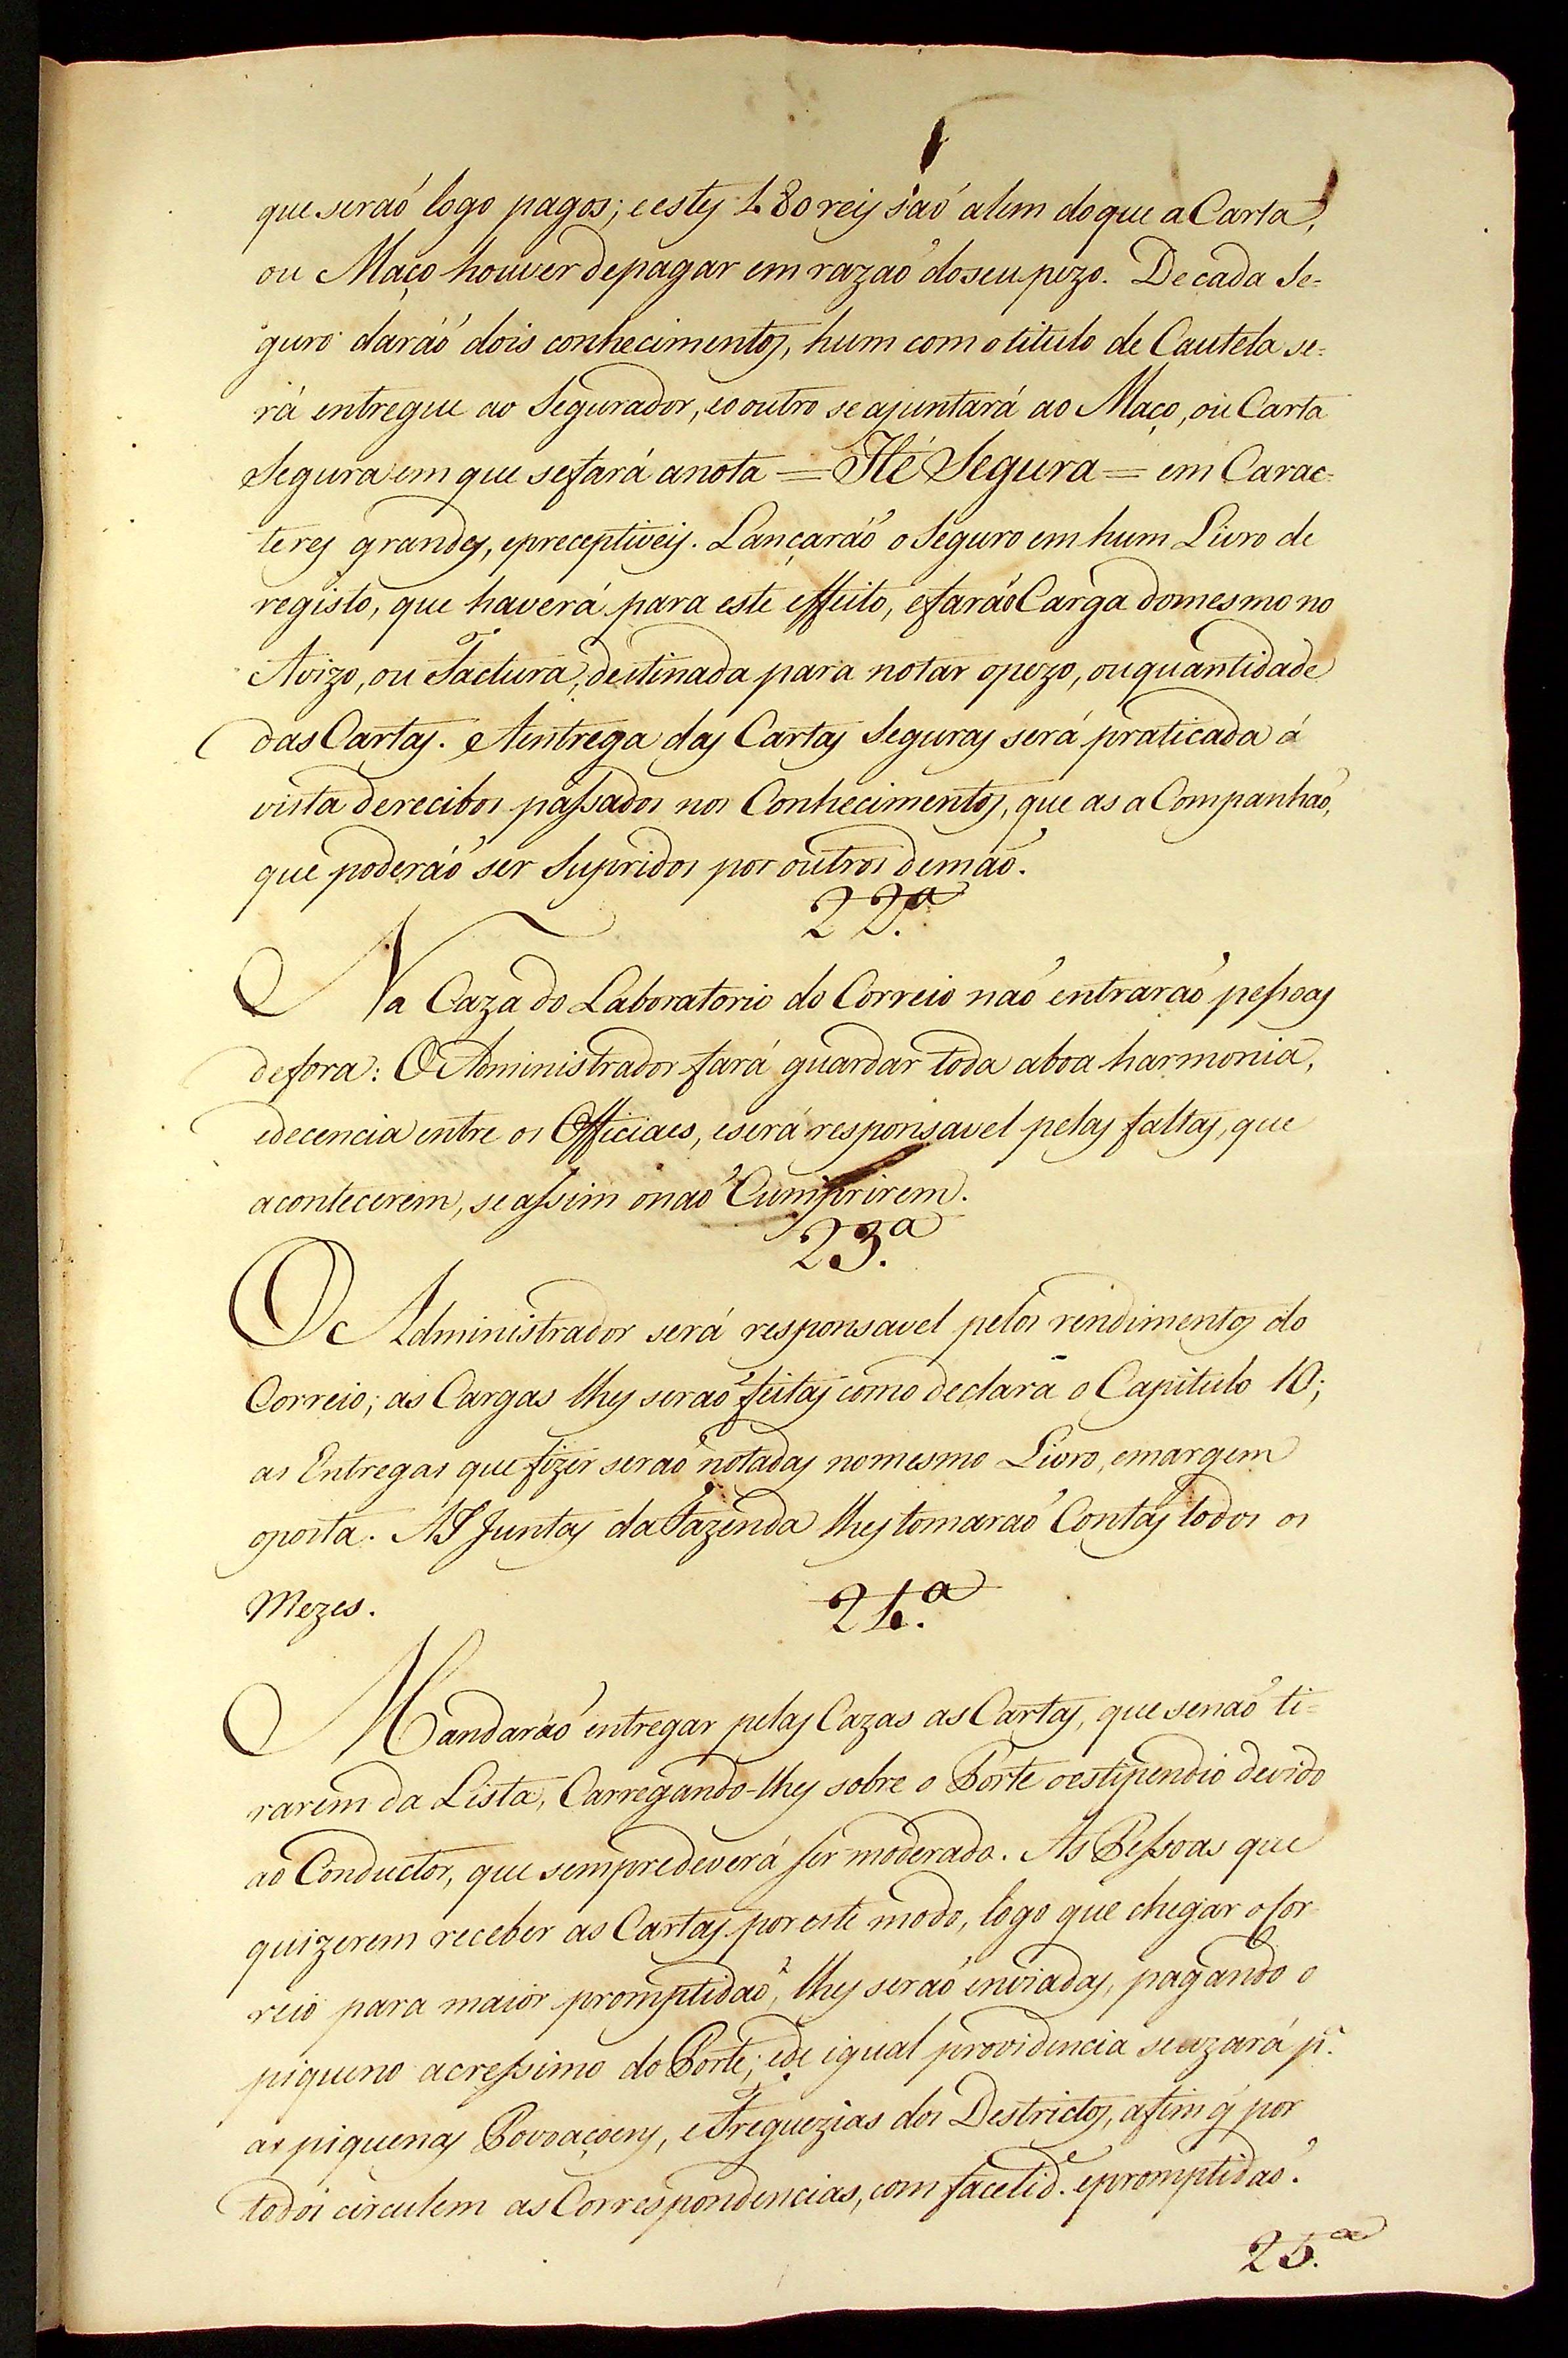 que seraõ logo pagos; e estes 480 reis saõ alem do que a Carta,
ou Maço houver de pagar em razaõ do seu pezo. De cada Se=
guro daráõ dois conhecimentos, hum com o titulo de Cautela se=
rá entregue ao Segurador, e o outro se ajuntará ao Maço, ou Carta
Segura em que se fará a nota = Hé Segura = em Carac=
teres grandes, e preceptiveis. Lançaráõ o Seguro em hum Livro de
registo, que haverá para este effeito, e faráõ Carga do mesmo no
Avizo, ou Factura, destinada para notar o pezo, ou quantidade
das Cartas. A entrega das Cartas Seguras será praticada á
vista de recibos passados nos Conhecimentos, que as aCompanhaõ,
que poderáõ ser Supridos por outros de maõ.
22.ª
Na Caza do Laboratorio do Correio naõ entraráõ pessoas
de fora: O Administrador fará guardar toda a boa harmonia,
e decencia entre os Officiaes, e será responsavel pelas faltas, que
acontecerem, se assim o naõ Cumprirem.
23.ª
O Administrador será responsavel pelos rendimentos do
Correio; as Cargas lhes seraõ feitas como declara o Capitulo 10;
as Entregas que fizer seraõ notadas no mesmo Livro, e margem
oposta. AS Juntas da Fazenda lhes tomaraõ Contas todos os
Mezes.
24.ª
Mandaráõ entregar pelas Cazas as Cartas, que se naõ ti=
rarem da Lista, Carregando-lhes sobre o Porte o estipendio devido
ao Conductor, que sempre deverá ser moderado. As Pessoas que
quizerem receber as Cartas por este modo, logo que chegar o Cor
reio para maior promptidaõ, lhes seraõ enviadas, pagando o
piqueno acressimo do Porte; e de igual providencia se uzará p.ª
as piquenas Povoaçoens, e Freguezias dos Destrictos, afim q̃ por
todos circulem as Correspondencias, com facelid.e e promptidaõ.
25.ª